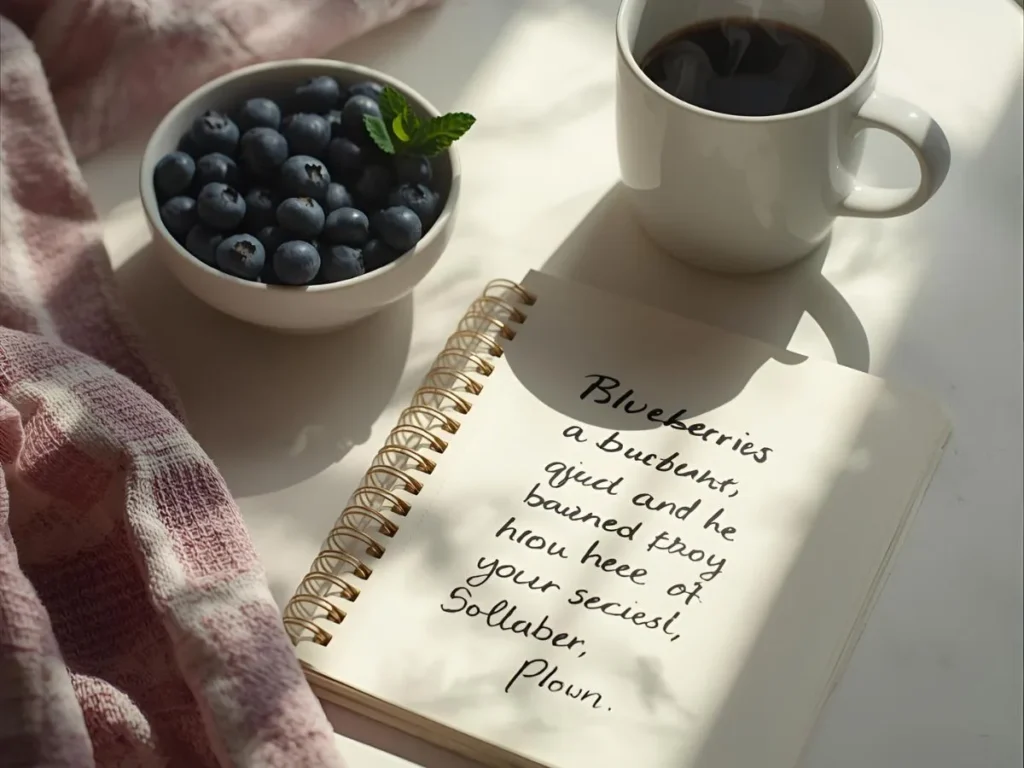 Blueberries
a bucbeant,
qjud and he
baurned ŧʀoy
hrou heee of
your seciesl,
Sollaber,
Plown.